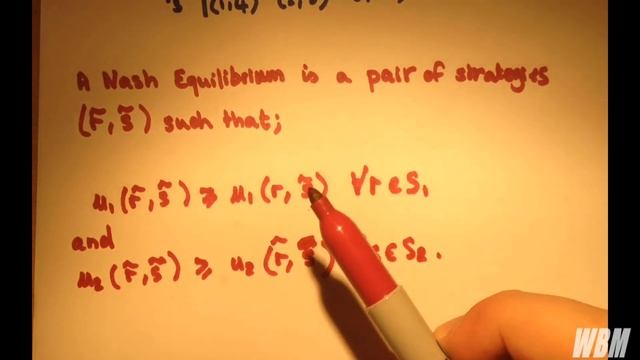 A Nash Equilibrium is a pair of strategies
(r̃, s̃) such that;
u₁(r̃, s̃) ≥ u₁(r, s̃) ∀r ∈ S₁
and
u₂(r̃, s̃) ≥ u₂(r̃, s̃) ∈ S₂.
WBM